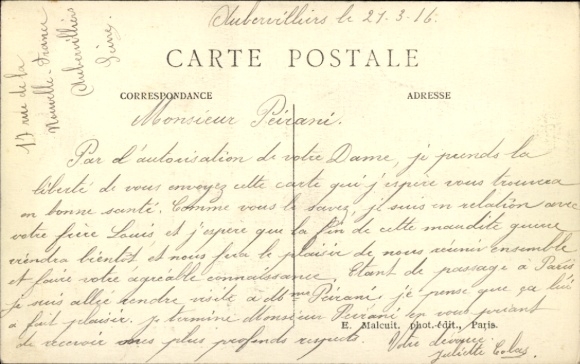 Aubervilliers le 21-3-16.
17 rue de la
Nouvelle-France
Aubervilliers
Seine.
CARTE POSTALE
CORRESPONDANCE
ADRESSE
Monsieur Peirani.
Par d'autorisation de votre Dame, je prends la
liberté de vous envoyez cette carte qui j'espère vous trouvera
en bonne santé. Comme vous le savez, je suis en relation avec
votre frère Louis et j'espère que la fin de cette maudite guerre
viendra bientôt et nous fera le plaisir de nous réunir ensemble
et faire votre agréable connaissance. Etant de passage à Paris
je suis allée rendre visite à Mme Peirani, je pense que ça lui
a fait plaisir. je termine Monsieur Peirani en vous priant
de recevoir mes plus profonds respects.
E. Malcuit, phot.-édit., Paris.
Votre dévouée
Juliette